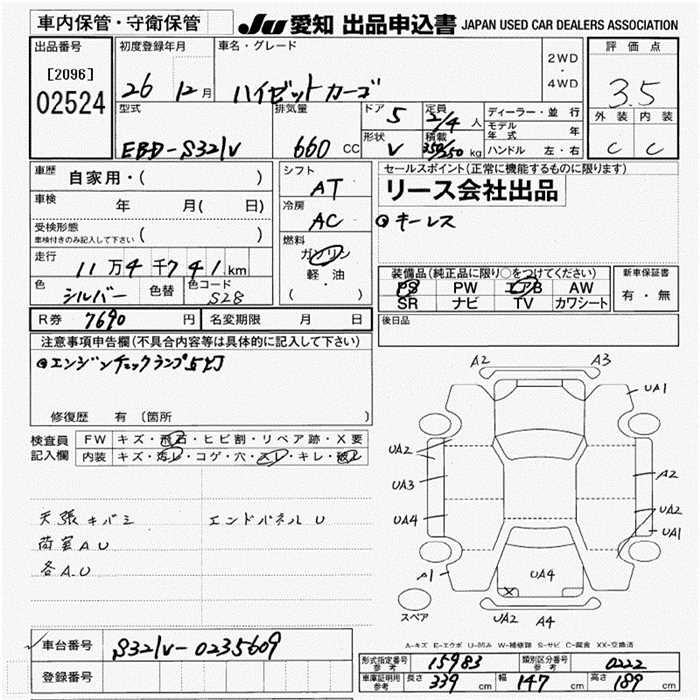 車内保管・守衛保管 JU 愛知 出品申込書 JAPAN USED CAR DEALERS ASSOCIATION
出品番号 初度登録年月 車名・グレード 2WD・4WD 評価点
[2096]
02524
26 12月 ハイゼットカーゴ 3.5
型式 排気量 ドア 5 定員 2/4 人 ディーラー・並行 外装 内装
モデル年式 年
EBD-S321V 660 CC 形状 V 積載 350/250 kg ハンドル 左・右 C C
車歴 自家用・( ) シフト AT セールスポイント(正常に機能するものに限ります)
リース会社出品
車検 年 月( 日) 冷房 AC ・キーレス
受検形態 車検付きのみ記入して下さい ( )
燃料 ガソリン
軽・油
( )
走行 11万4千741km
装備品(純正品に限り○をつけてください) 新車保証書
色 シルバー 色替 色コード S28 PS PW エアB AW 有・無
SR ナビ TV カワシート
R券 7690円 名変期限 月 日 後日品
注意事項申告欄(不具合内容等は具体的に記入して下さい)
・エンジンチェックランプ点灯
修復歴 有(箇所 )
検査員記入欄 FW キズ・飛石・ヒビ割・リペア跡・X要
内装 キズ・汚レ・コゲ・穴・スレ・キレ・破レ
天張キバミ エンドパネルU
荷室AU
各A.U
A2 A3
UA1
UA2
UA3 A2
UA4 UA2
UA1
A1 UA4
X
スペア UA2 A4
A-キズ E-エクボ U-凹み W-補修跡 S-サビ C-腐食 XX-交換済
車台番号 S321V-0235609
登録番号
形式指定番号 参考 15983 類別区分番号 参考 0222
車庫証明用 参考 長さ 339 cm 幅 147 cm 高さ 189 cm